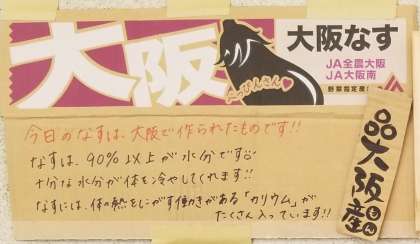 大阪
べっぴんさん
大阪なす
JA全農大阪
JA大阪南
野菜指定産
今日のなすは、大阪で作られたものです!!
なすは、90%以上が水分です
十分な水分が体を冷やしてくれます!!
なすには、体の熱をにがす働きがある「カリウム」が
たくさん入っています!!
大阪産
もん